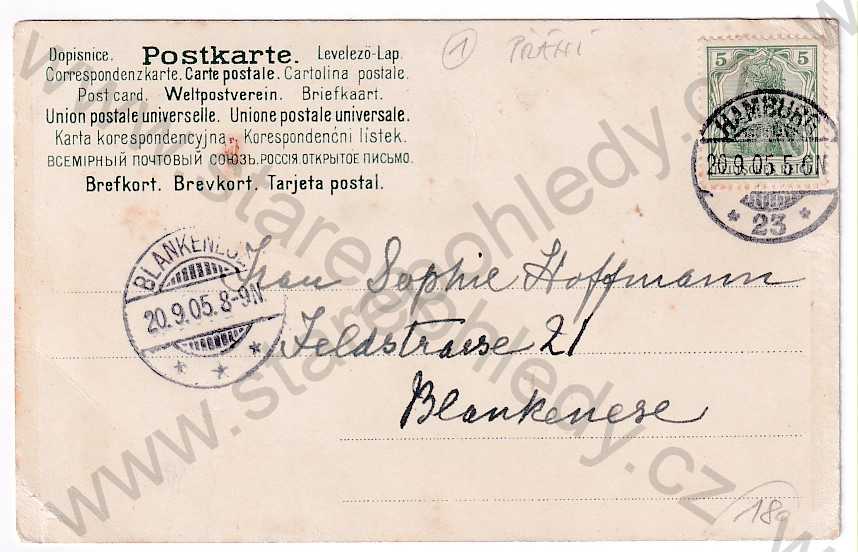 Dopisnice. Postkarte. Levelezö-Lap.
Correspondenzkarte. Carte postale. Cartolina postale.
Post card. Weltpostverein. Briefkaart.
Union postale universelle. Unione postale universale.
Karta korespondencyjna. Korespondenčni listek.
ВСЕМІРНЫЙ ПОЧТОВЫЙ СОЮЗЪ. РОССІЯ. ОТКРЫТОЕ ПИСЬМО.
Brefkort. Brevkort. Tarjeta postal.
1 PŘÁNÍ
5 5
HAMBURG
20.9.05 5-6N
* 23 *
BLANKENESE
20.9.05. 8-9N
* * *
Frau Sophie Hoffmann
Feldstrasse 21
Blankenese
180
www.starepohledy.cz